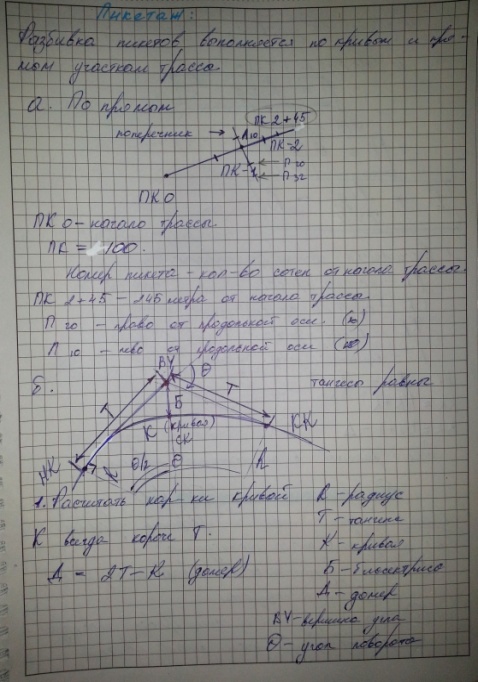 Пикетаж:
Разбивка пикетов выполняется по кривым и пря-
мым участкам трассы.
а. По прямой
ПК 2+45
поперечник
Л 10
ПК-2
П 20
ПК-1
П 32
ПК 0
ПК 0 - начало трассы.
ПК = 100.
Номер пикета - кол-во сотен от начала трассы.
ПК 2+45 - 245 метра от начала трассы
П 20 - право от продольной оси. (20)
Л 10 - лево от продольной оси
ВУ
Θ
Б.
Т
Т
тангесы равны
Б
К (кривая)
СК
КК
НК
Θ/2
Θ
1. Расчитать хар-ки кривой
R - радиус
Т - тангенс
К всегда короче Т.
К - кривая
Д = 2Т - К (домер)
Б - биссектриса
Д - домер
ВУ - вершина угла
Θ - угол поворота